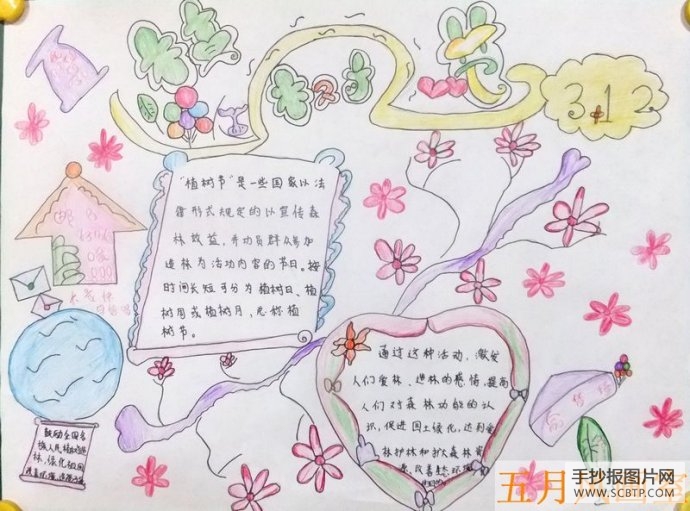 3.12
"植树节"是一些国家以法
律形式规定的以宣传森
林效益,并动员群众参加
造林为活动内容的节日。按
时间长短可分为植树日、植
树周或植树月,总称植
树节。
通过这种活动,激发
人们爱林、造林的感情,提高
人们对森林功能的认
识,促进国土绿化,达到爱
林护林和扩大森林资
源、改善
鼓励全国各
族人民植树造
林,绿化祖国
五月
手抄报图片网
WWW.SCBTP.COM